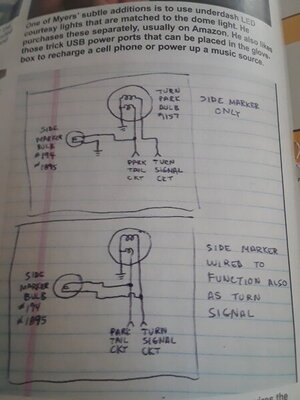 One of Myers' subtle additions is to use underdash LED
courtesy lights that are matched to the dome light. He
purchases these separately, usually on Amazon. He also likes
those trick USB power ports that can be placed in the glove-
box to recharge a cell phone or power up a music source.
TURN
PARK
BULB
#1157
SIDE MARKER
ONLY
SIDE
MARKER
BULB
#194
#1895
PARK
TAIL
CKT
TURN
SIGNAL
CKT
SIDE MARKER
WIRED TO
FUNCTION ALSO
AS TURN
SIGNAL
SIDE
MARKER
BULB
#194
#1895
PARK
TAIL
CKT
TURN
SIGNAL
CKT
the